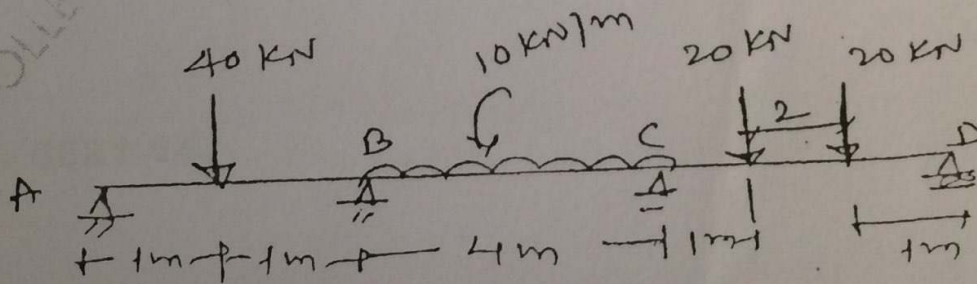 40 KN 10 KN/m 20 KN 20 KN
2
A B C D
1m 1m 4m 1m 1m